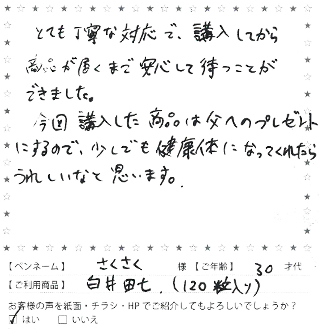 とても丁寧な対応で、購入してから
商品が届くまで安心して待つことが
できました。
今回購入した商品は父へのプレゼント
にするので、少しでも健康体になってくれたら
うれしいなと思います。
【ペンネーム】 さくさく 様 【ご年齢】 30 才代
【ご利用商品】 白井田七 (120粒入り)
お客様の声を紙面・チラシ・HPでご紹介してもよろしいでしょうか?
☑はい □いいえ